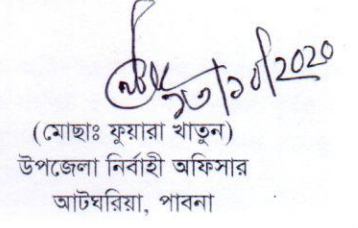 ১৩/১০/২০২০
(মোছাঃ ফুয়ারা খাতুন)
উপজেলা নির্বাহী অফিসার
আটঘরিয়া, পাবনা